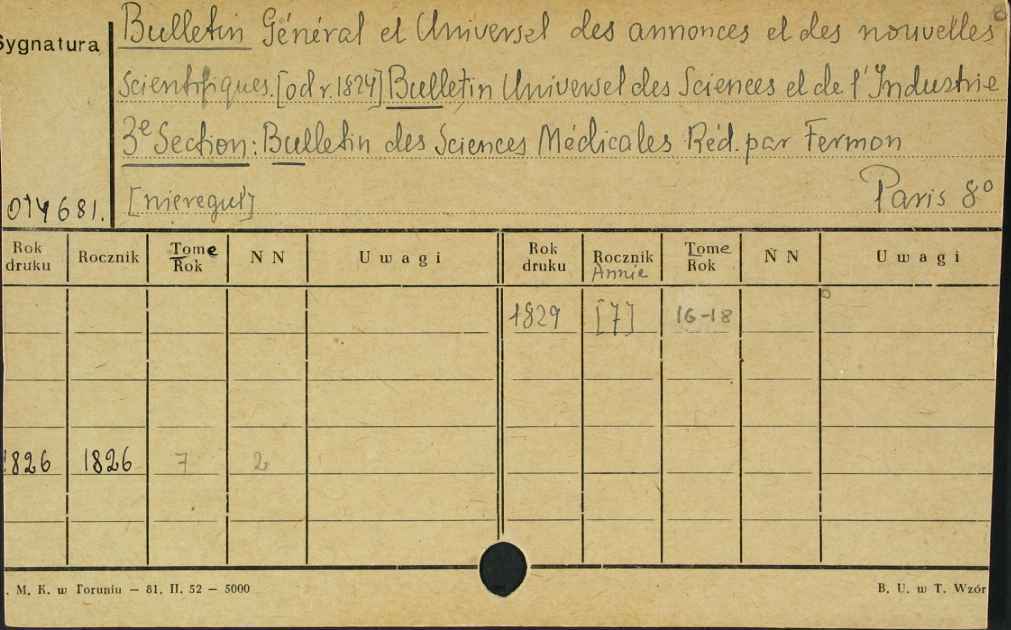 Sygnatura
Bulletin Général et Universel des annonces et des nouvelles
Scientifiques. [od r. 1824] Bulletin Universel des Sciences et de l'Industrie
3e Section: Bulletin des Sciences Médicales Réd. par Fermon
014681. [nieregul] Paris 8°
Rok druku Rocznik Tome Rok N N Uwagi Rok druku Rocznik Annie Tome Rok N N Uwagi
1829 [7] 16-18
1826 1826 7 2
. M. K. w Toruniu – 81. II. 52 – 5000 B. U. w T. Wzór